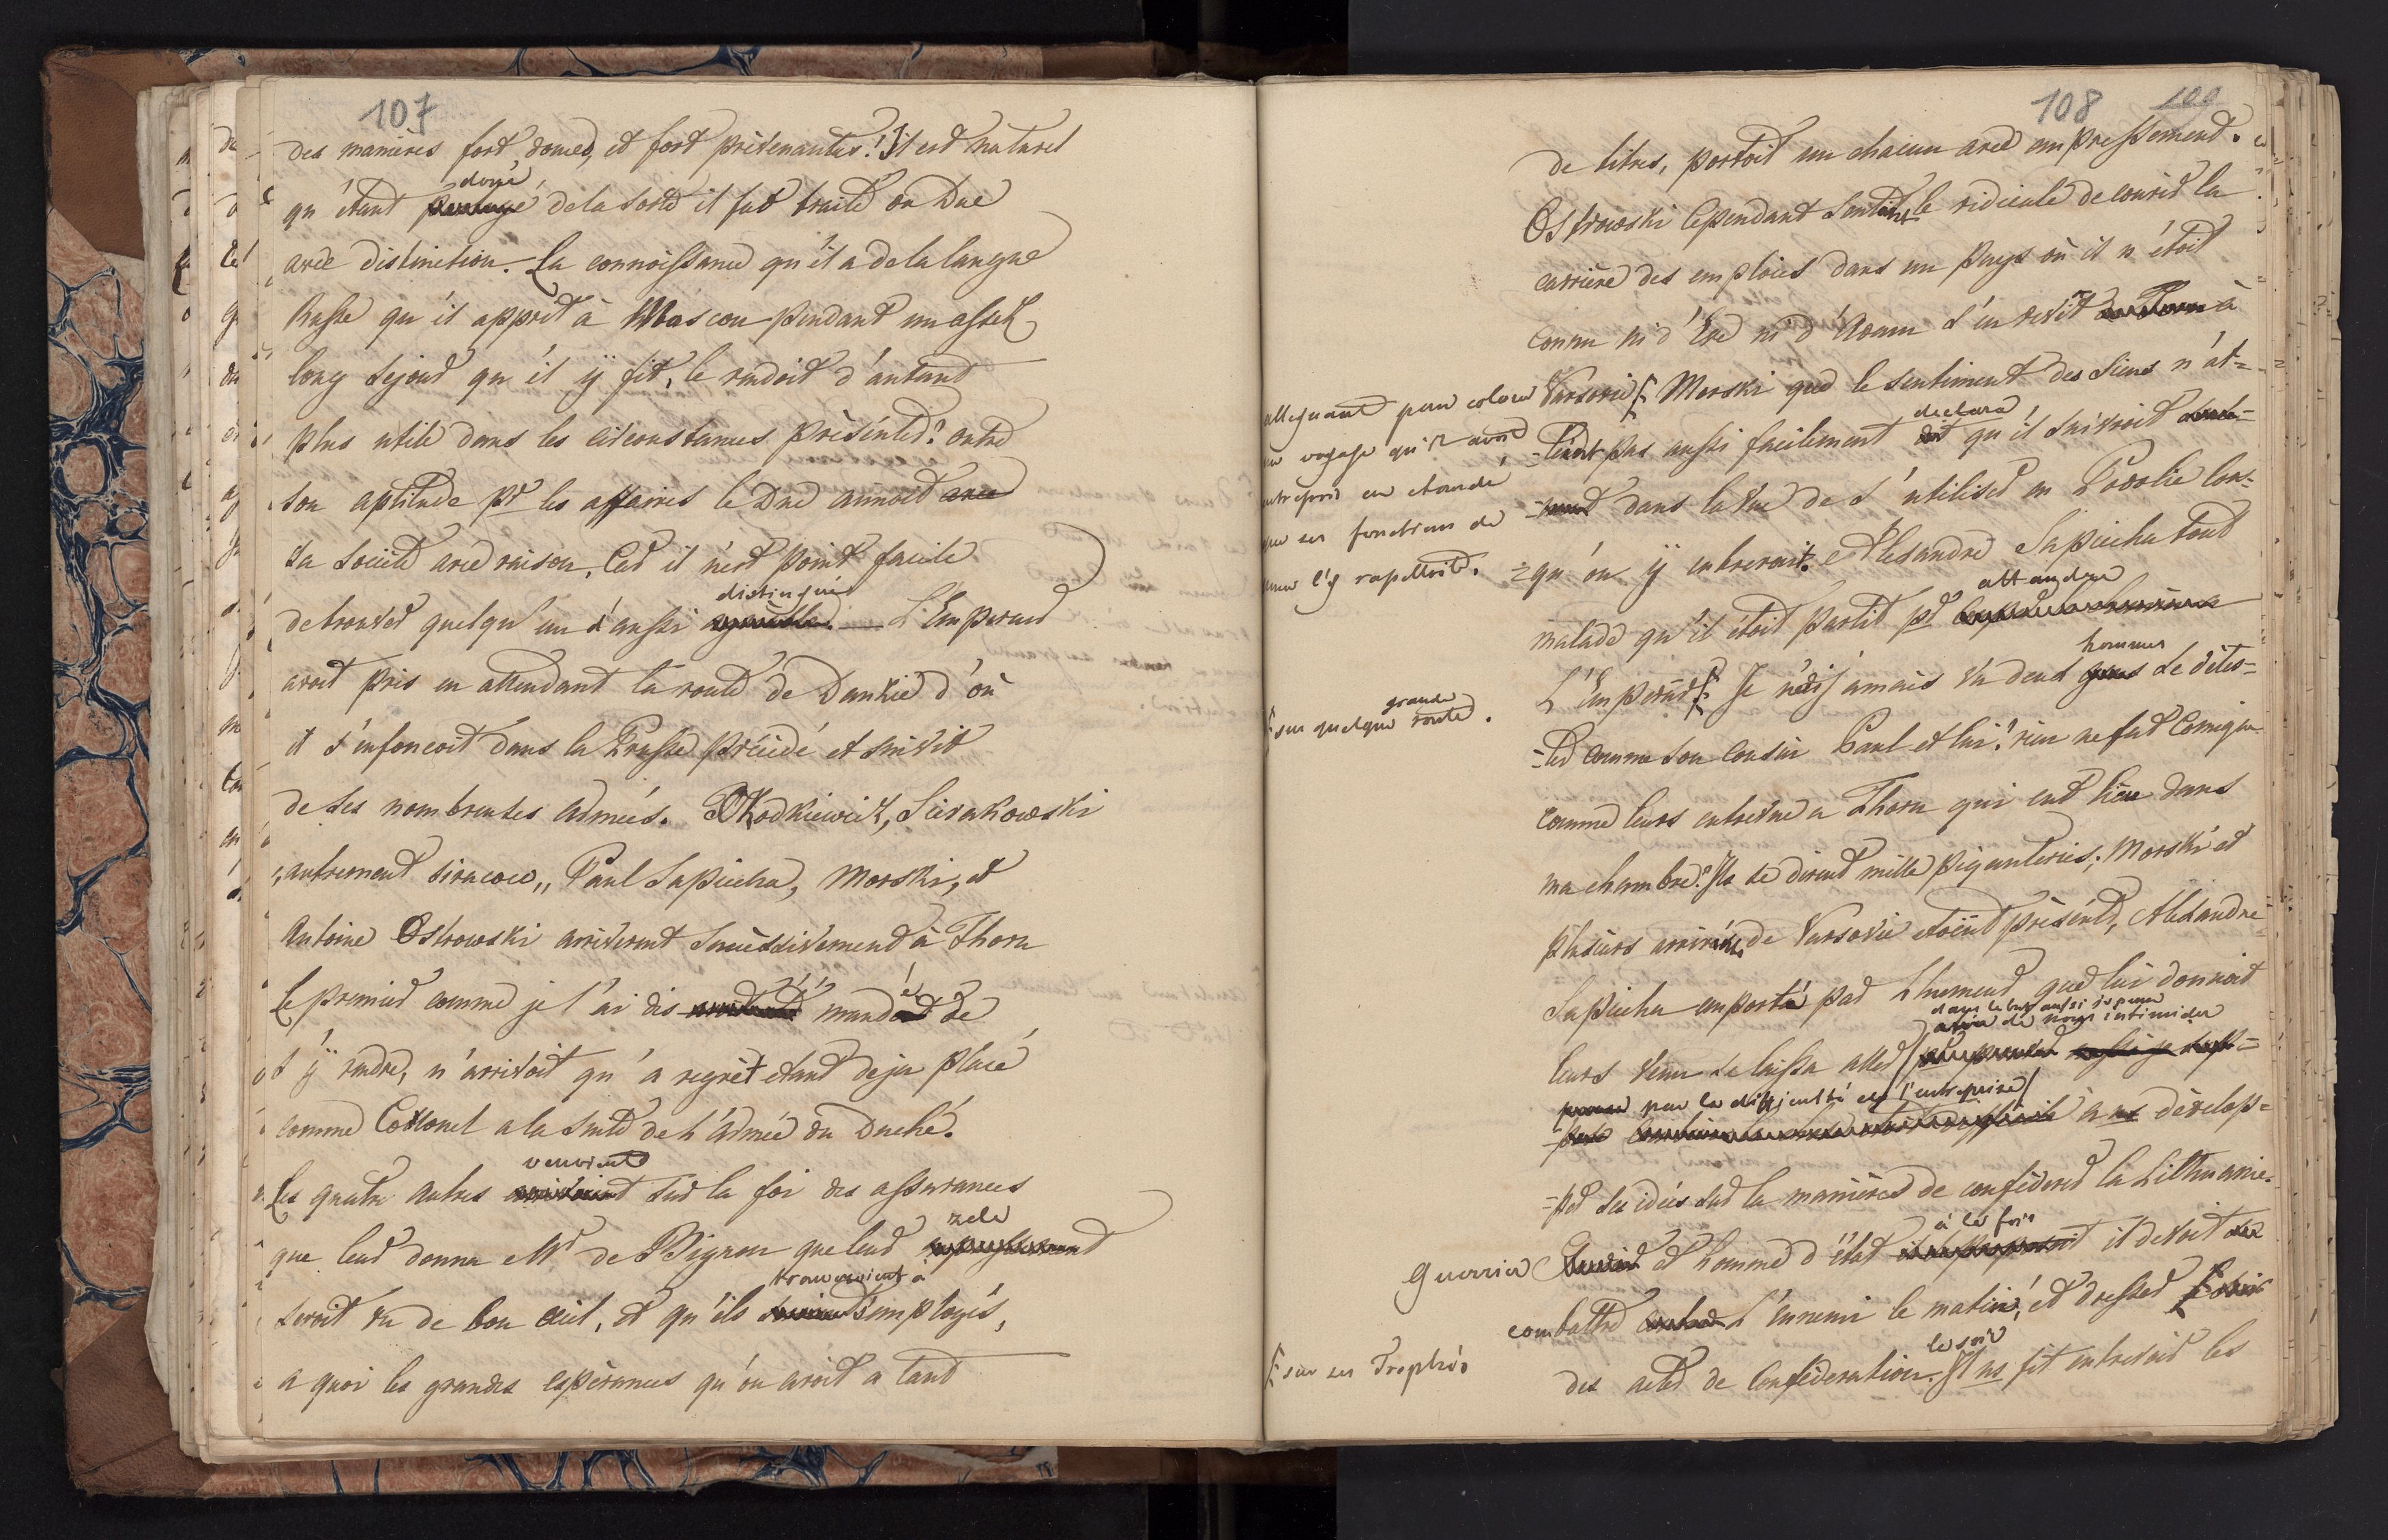 107
des manières fort douces, et fort prévenantes! Il est naturel
doué
qu'étant partagé de la sorte il fut traité du Duc
avec distinction. La connoissance qu'il a de la langue
Russe qu'il apprit à Moscou pendant un assez
long sejour qu'il ÿ fit, le rendoit d'autant
plus utile dans les circonstances présentes! outre
son aptitude pr les affaires le Duc aimoit avec
sa société avec raison, Car il n'est point facile
distingué
de trouver quelqu'un d'aussi agréable. — L'Empereur
avoit pris en attendant la route de Dantzic d'où
il s'enfoncoit dans la Prusse précédé et suivit
de ses nombreuses armées. Chodkiewicz, Sierakowski
"autrement siracoco,, Paul Sapieha, Morski, et
Antoine Ostrowski arrivèrent successivement à Thorn
Le premier comme je l'ai dis mandé de
s'ÿ rendre, n'arrivoit qu'a regrèt etant deja placé
comme Collonel a la suite de l'Armée du Duché.
venoient
Les quatre autres arrivoient sur la foi des assurances
que leur donna Mr de Bignon que leur zele empressement
seroit vu de bon œil, et qu'ils
trouveroient à
seroient employés,
a quoi les grandes espérances qu'on avoit a tant
108 109
de titres, portoit un chacun avec empressement.
Ostrowski Cependant sentant le ridicule de courir la
carrière des emplois dans un Pays où il n'étoit
connu ni d'Eve ni d'Adam s'en revit de Thorn à
Varsovie Morski que le sentiment des siens n'at=
alleguant pour colorer
un voyage qu'il avoit
entrepris en etourdi
que ses fonctions de
l'y rapelloit.
declara
=teint pas aussi facilement dit qu'il suivroit
dans la vue de s'utiliser en Podolie lors=
=qu'on ÿ entreroit. Alexandre Sapieha tout
attendre
malade qu'il étoit partit pr
L'Empereur Je n'ai jamais vu deux
hommes
gens se détes=
sur quelque grande route.
=ter comme son cousin Paul et lui! rien ne fut Comique
comme leurs entrevue a Thorn qui eut lieu dans
ma chambre! Ils se dirent mille piquanteries, Morski et
plusieurs arrivés de Varsovie etoient présents, Alexandre
Sapieha emporté par L'humeur que lui donnoit
dans le but aussi je pense
de nous intimider
leurs venu se laissa aller
par la difficulté de l'entreprise
à ns dévelop=
=per ses idées sur la manières de confédérer la Lithuanie.
à la fois
Guerrier et homme d'état il devoit
combattre L'ennemi le matin, et dresser
sur ses Trophés
le soir
des actes de Confédération. Il ns fit entrevoir les